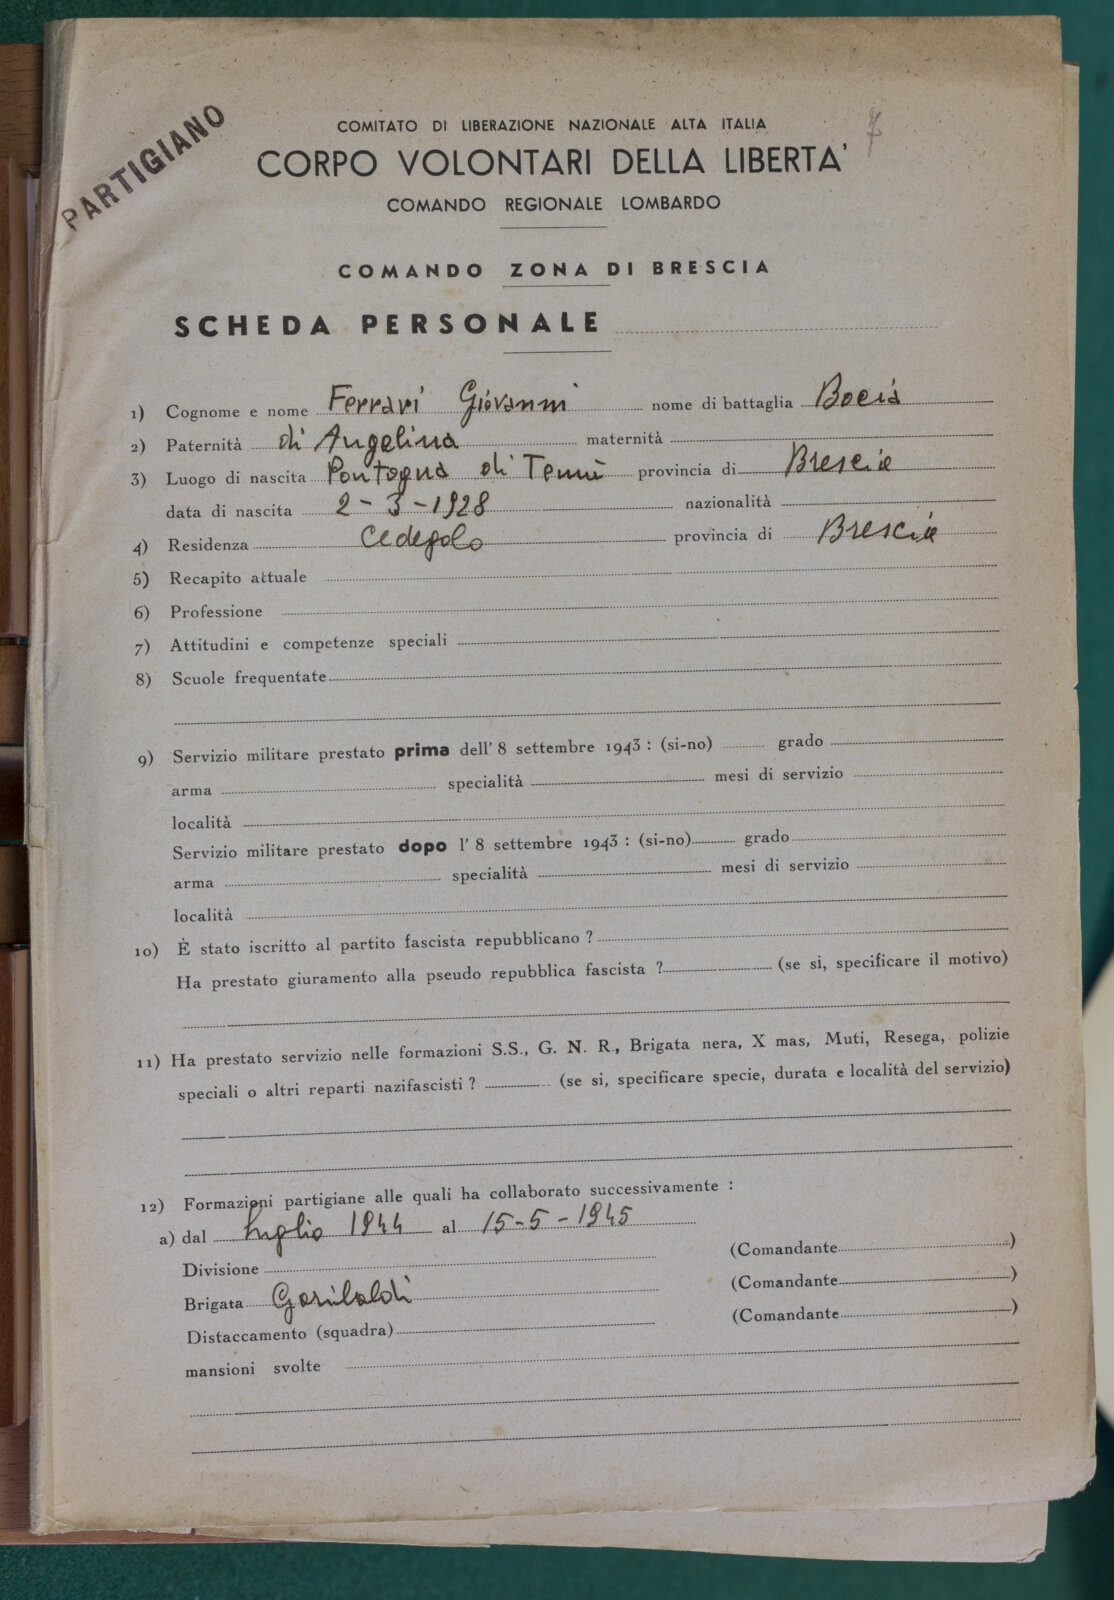 PARTIGIANO
7
COMITATO DI LIBERAZIONE NAZIONALE ALTA ITALIA
CORPO VOLONTARI DELLA LIBERTA'
COMANDO REGIONALE LOMBARDO
COMANDO ZONA DI BRESCIA
SCHEDA PERSONALE
1) Cognome e nome Ferrari Giovanni nome di battaglia Bocia
2) Paternità di Angelina maternità
3) Luogo di nascita Pontagna di Temù provincia di Brescia
data di nascita 2-3-1928 nazionalità
4) Residenza Cedegolo provincia di Brescia
5) Recapito attuale
6) Professione
7) Attitudini e competenze speciali
8) Scuole frequentate
9) Servizio militare prestato prima dell' 8 settembre 1943 : (si-no) grado
arma specialità mesi di servizio
località
Servizio militare prestato dopo l' 8 settembre 1943 : (si-no) grado
arma specialità mesi di servizio
località
10) È stato iscritto al partito fascista repubblicano ?
Ha prestato giuramento alla pseudo repubblica fascista ? (se si, specificare il motivo)
11) Ha prestato servizio nelle formazioni S.S., G. N. R., Brigata nera, X mas, Muti, Resega, polizie
speciali o altri reparti nazifascisti ? (se si, specificare specie, durata e località del servizio)
12) Formazioni partigiane alle quali ha collaborato successivamente :
a) dal luglio 1944 al 15-5-1945
Divisione (Comandante )
Brigata Garibaldi (Comandante )
Distaccamento (squadra) (Comandante )
mansioni svolte